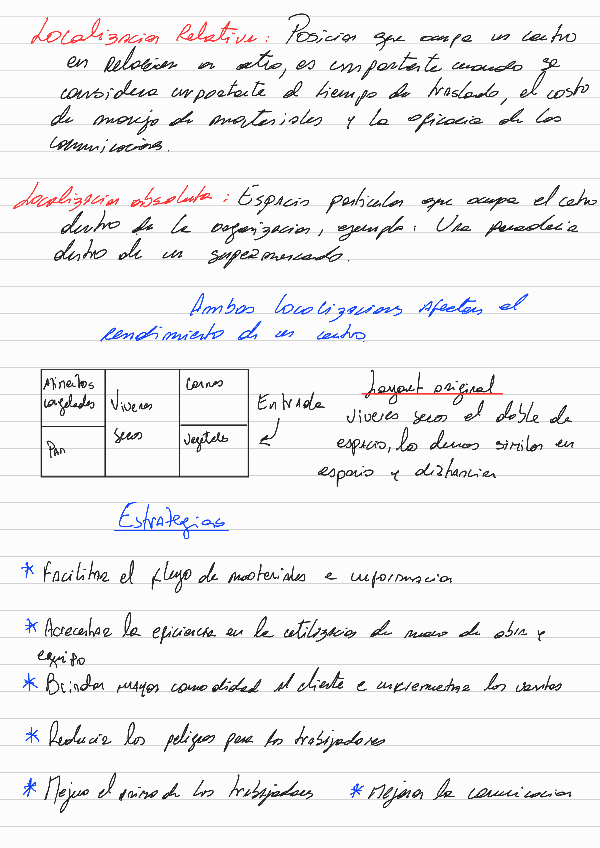 Localizacion Relativa: Posicion que ocupa un centro
en relacion a otro, es importante cuando se
considera importante el tiempo de traslado, el costo
de manejo de materiales y la eficacia de las
comunicaciones.
Localizacion absoluta: Espacio particular que ocupa el centro
dentro de la organizacion, ejemplo: Una panaderia
dentro de un supermercado.
Ambas localizaciones afectan el
rendimiento de un centro
Alimentos
congelados
Viveres
Secos
Carnes
Pan
Vegetales
Entrada
Layout original
Viveres secos el doble de
espacio, los demas similar en
espacio y distancia
Estrategias
* Facilitar el flujo de materiales e informacion
* Acrecentar la eficiencia en la utilizacion de mano de obra y
equipo
* Brindar mayor comodidad al cliente e incrementar las ventas
* Reducir los peligros para los trabajadores
* Mejora el animo de los trabajadores * Mejorar la comunicacion